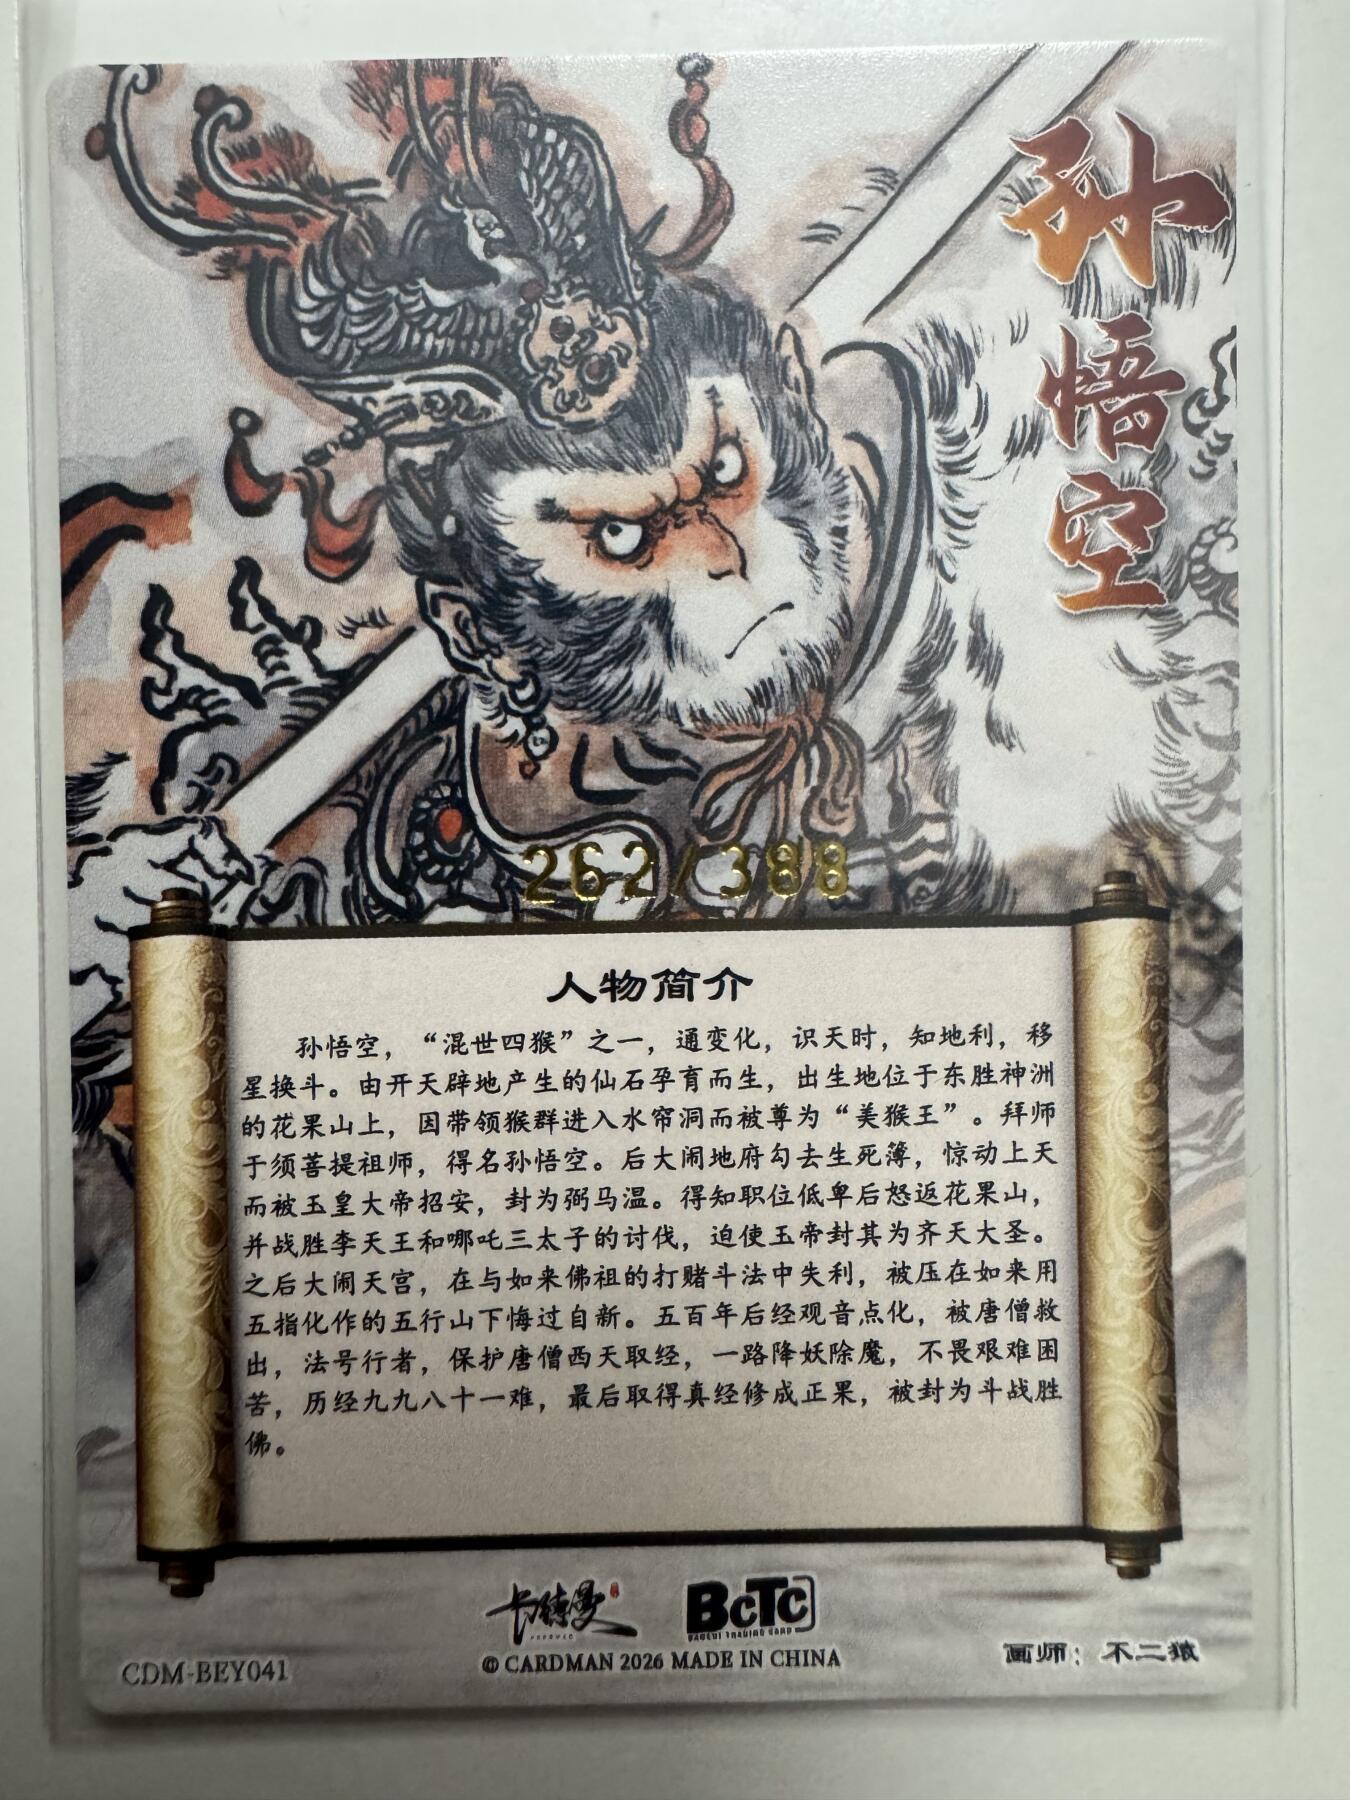 孙悟空
262/388
人物简介
孙悟空，“混世四猴”之一，通变化，识天时，知地利，移
星换斗。由开天辟地产生的仙石孕育而生，出生地位于东胜神洲
的花果山上，因带领猴群进入水帘洞而被尊为“美猴王”。拜师
于须菩提祖师，得名孙悟空。后大闹地府勾去生死簿，惊动上天
而被玉皇大帝招安，封为弼马温。得知职位低卑后怒返花果山，
并战胜李天王和哪吒三太子的讨伐，迫使玉帝封其为齐天大圣。
之后大闹天宫，在与如来佛祖的打赌斗法中失利，被压在如来用
五指化作的五行山下悔过自新。五百年后经观音点化，被唐僧救
出，法号行者，保护唐僧西天取经，一路降妖除魔，不畏艰难困
苦，历经九九八十一难，最后取得真经修成正果，被封为斗战胜
佛。
BCTC
© CARDMAN 2026 MADE IN CHINA
CDM-BEY041
画师：不二猿